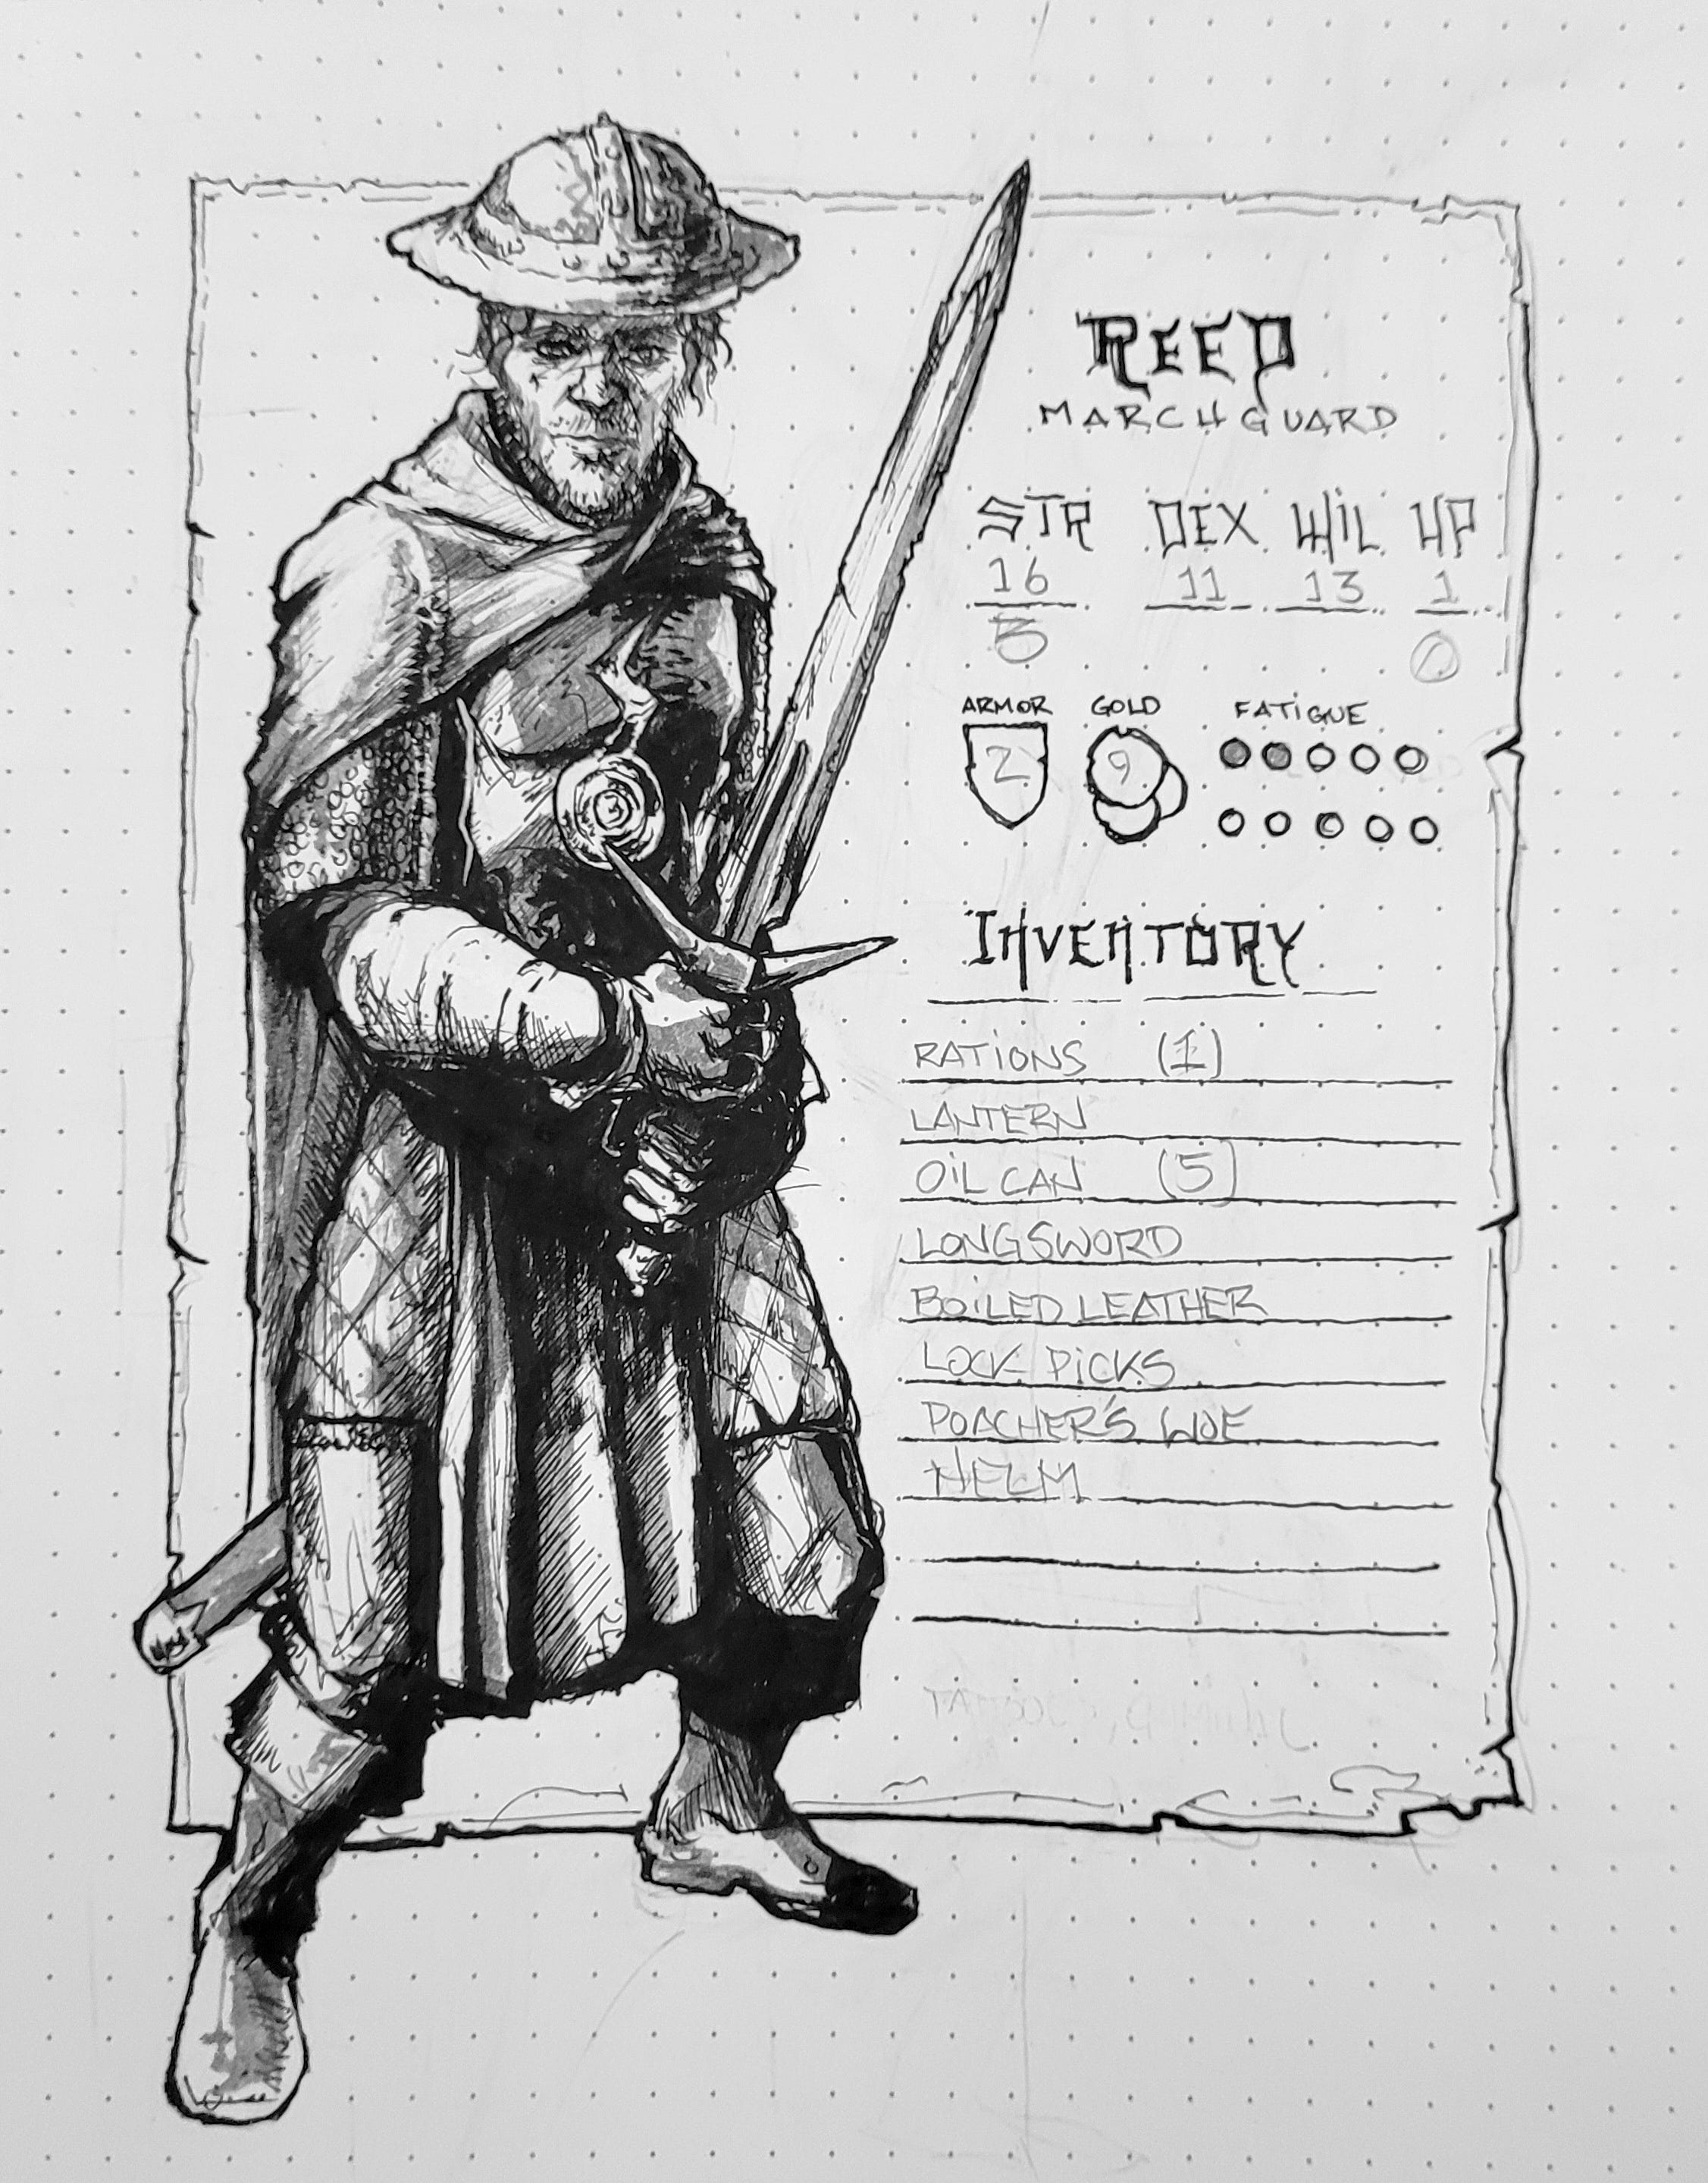 REED
MARCHGUARD
STR DEX WIL HP
16 11 13 1
5 0
ARMOR GOLD FATIGUE
2 9
INVENTORY
RATIONS (1)
LANTERN
OIL CAN (5)
LONGSWORD
BOILED LEATHER
LOCK PICKS
POACHER'S WOE
HELM